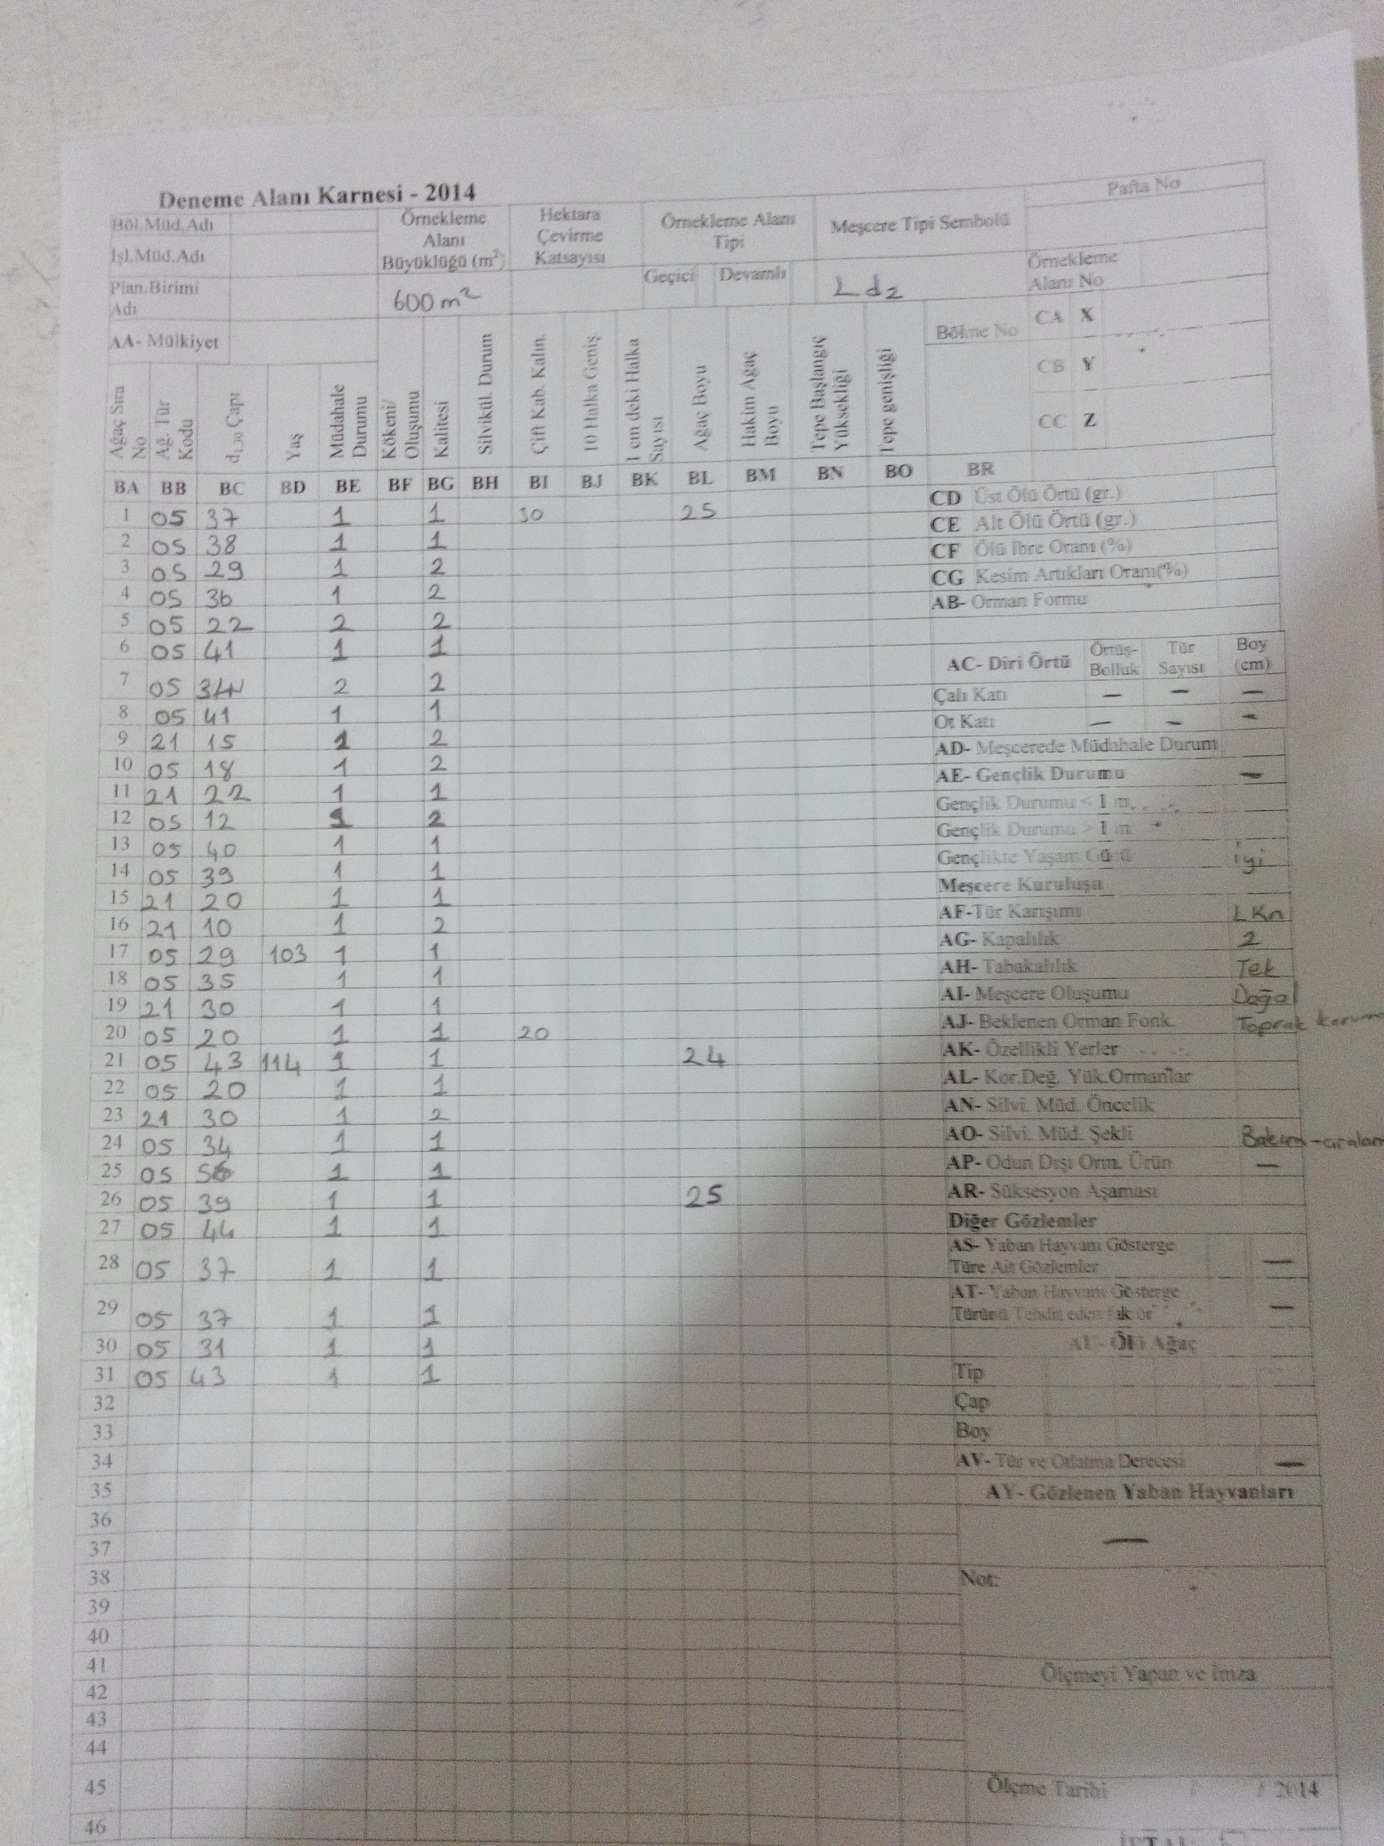 Deneme Alanı Karnesi - 2014
Pafta No
Böl.Müd.Adı
İşl.Müd.Adı
Plan.Birimi Adı
Örnekleme Alanı Büyüklüğü (m²)
600 m²
Hektara Çevirme Katsayısı
Örnekleme Alanı Tipi
Geçici Devamlı
Meşcere Tipi Sembolü
Ld2
Örnekleme Alanı No
AA- Mülkiyet
Bölme No
CA X
CB Y
CC Z
Ağaç Sıra No
Ağ. Tür Kodu
d1.30 Çapı
Yaş
Müdahale Durumu
Kökeni/ Oluşumu
Kalitesi
Silvikül. Durum
Çift Kab. Kalın.
10 Halka Geniş.
1 cm deki Halka Sayısı
Ağaç Boyu
Hakim Ağaç Boyu
Tepe Başlangıç Yüksekliği
Tepe genişliği
BA BB BC BD BE BF BG BH BI BJ BK BL BM BN BO BR
1 05 37 1 1 30 25
2 05 38 1 1
3 05 29 1 2
4 05 36 1 2
5 05 22 2 2
6 05 41 1 1
7 05 34 2 2
8 05 41 1 1
9 21 15 1 2
10 05 18 1 2
11 21 22 1 1
12 05 12 1 2
13 05 40 1 1
14 05 39 1 1
15 21 20 1 1
16 21 10 1 2
17 05 29 103 1 1
18 05 35 1 1
19 21 30 1 1
20 05 20 1 1 20
21 05 43 114 1 1 24
22 05 20 1 1
23 21 30 1 2
24 05 34 1 1
25 05 56 1 1
26 05 39 1 1 25
27 05 44 1 1
28 05 37 1 1
29 05 37 1 1
30 05 31 1 1
31 05 43 1 1
32
33
34
35
36
37
38
39
40
41
42
43
44
45
46
CD Üst Ölü Örtü (gr.)
CE Alt Ölü Örtü (gr.)
CF Ölü İbre Oranı (%)
CG Kesim Artıkları Oranı(%)
AB- Orman Formu
AC- Diri Örtü Örtüş- Bolluk Tür Sayısı Boy (cm)
Çalı Katı — — —
Ot Katı — — —
AD- Meşcerede Müdahale Durum
AE- Gençlik Durumu —
Gençlik Durumu < 1 m.
Gençlik Durumu > 1 m
Gençlikte Yaşam Gücü iyi
Meşcere Kuruluşu
AF-Tür Karışımı LKn
AG- Kapalılık 2
AH- Tabakalılık Tek
AI- Meşcere Oluşumu Doğal
AJ- Beklenen Orman Fonk. Toprak
AK- Özellikli Yerler
AL- Kor.Değ. Yük.Ormanlar
AN- Silvi. Müd. Öncelik
AO- Silvi. Müd. Şekli Bakım
AP- Odun Dışı Orm. Ürün —
AR- Süksesyon Aşaması
Diğer Gözlemler
AS- Yaban Hayvanı Gösterge
Türe Ait Gözlemler —
AT- Yaban Hayvanı Gösterge
Türünü Tehdit eden faktör —
AU- Ölü Ağaç
Tip
Çap
Boy
AV- Tür ve Otlatma Derecesi —
AY- Gözlenen Yaban Hayvanları
—
Not:
Ölçmeyi Yapan ve İmza
Ölçme Tarihi / / 2014